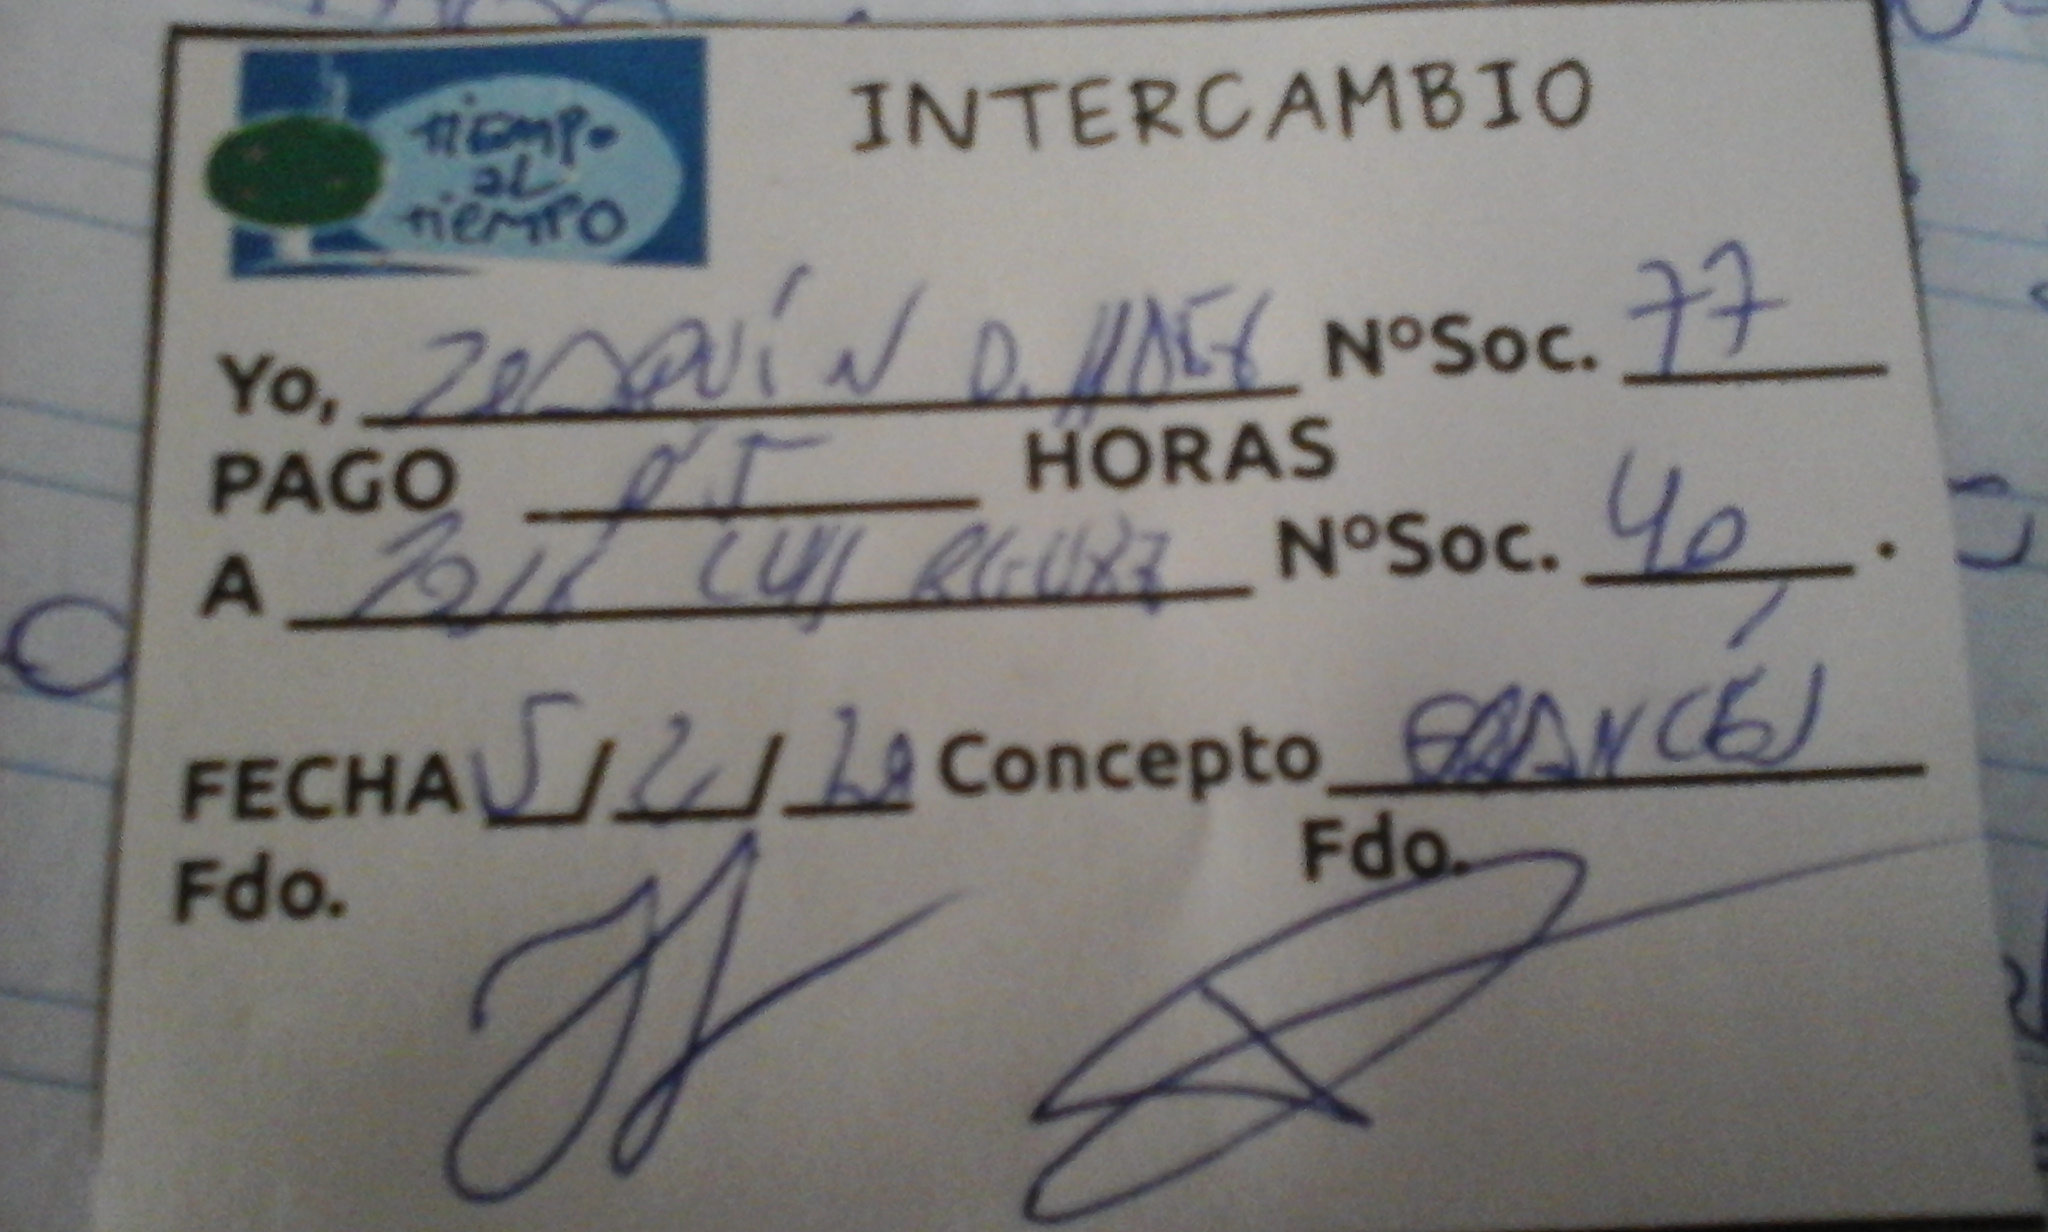 tiempo
al
tiempo
INTERCAMBIO
Yo, JOAQUÍN D. Nº Soc. 77
PAGO 0'5 HORAS
A JOSÉ LUIS Nº Soc. 40.
FECHA 5/2/20 Concepto FRANCÉS
Fdo. Fdo.